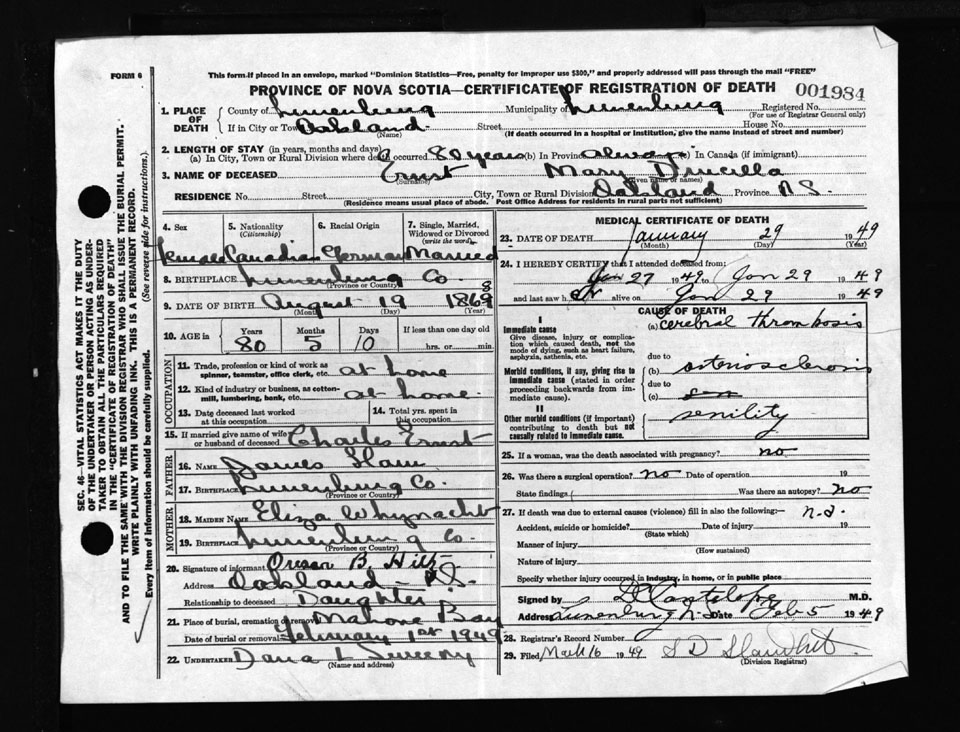 FORM 6
This form if placed in an envelope, marked "Dominion Statistics—Free, penalty for improper use $300," and properly addressed will pass through the mail "FREE"
PROVINCE OF NOVA SCOTIA—CERTIFICATE OF REGISTRATION OF DEATH 001984
1. PLACE OF DEATH County of Lunenburg Municipality of Lunenburg Registered No.
(For use of Registrar General only)
If in City or Town Oakland Street House No.
(Name) (If death occurred in a hospital or institution, give the name instead of street and number)
2. LENGTH OF STAY (in years, months and days)
(a) In City, Town or Rural Division where death occurred 80 years (b) In Province always (c) in Canada (if immigrant)
3. NAME OF DECEASED Ernst Mary Drucilla
(Surname) (Given name or names)
RESIDENCE No. Street City, Town or Rural Division Oakland Province N.S.
(Residence means usual place of abode. Post Office Address for residents in rural parts not sufficient)
4. Sex 5. Nationality (Citizenship) 6. Racial Origin 7. Single, Married, Widowed or Divorced (write the word)
Female Canadian German Married
8. BIRTHPLACE Lunenburg Co.
(Province or Country)
9. DATE OF BIRTH August 19 1869 8
(Month) (Day) (Year)
10. AGE in Years Months Days If less than one day old
80 5 10 hrs. or min.
OCCUPATION
11. Trade, profession or kind of work as spinner, teamster, office clerk, etc. at home
12. Kind of industry or business, as cotton-mill, lumbering, bank, etc. at home
13. Date deceased last worked at this occupation 14. Total yrs. spent in this occupation
15. If married give name of wife or husband of deceased Charles Ernst
FATHER
16. NAME James Ham
17. BIRTHPLACE Lunenburg Co.
(Province or Country)
MOTHER
18. MAIDEN NAME Eliza Whynacht
19. BIRTHPLACE Lunenburg Co.
(Province or Country)
20. Signature of informant B. Hiltz
Address Oakland N.S.
Relationship to deceased Daughter
21. Place of burial, cremation or removal Mahone Bay
Date of burial or removal February 1st 1949
22. UNDERTAKER Dana L Sweeny
(Name and address)
MEDICAL CERTIFICATE OF DEATH
23. DATE OF DEATH January 29 1949
(Month) (Day) (Year)
24. I HEREBY CERTIFY that I attended deceased from:
Jan 27 1949 to Jan 29 1949
and last saw her alive on Jan 29 1949
CAUSE OF DEATH
I
Immediate cause (a) cerebral thrombosis
Give disease, injury or complication which caused death, not the mode of dying, such as heart failure, asphyxia, asthenia, etc.
due to
Morbid conditions, if any, giving rise to immediate cause (stated in order proceeding backwards from immediate cause). (b) arteriosclerosis
due to
(c)
II
Other morbid conditions (if important) contributing to death but not causally related to immediate cause. senility
25. If a woman, was the death associated with pregnancy? no
26. Was there a surgical operation? no Date of operation 19
State findings Was there an autopsy? no
27. If death was due to external causes (violence) fill in also the following:—
Accident, suicide or homicide? Date of injury 19
(State which)
Manner of injury
(How sustained)
Nature of injury
Specify whether injury occurred in industry, in home, or in public place
Signed by M.D.
Address Lunenburg N.S. Date Feb 5 1949
28. Registrar's Record Number
29. Filed March 16 1949 S D
(Division Registrar)
SEC. 46—VITAL STATISTICS ACT MAKES IT THE DUTY
OF THE UNDERTAKER OR PERSON ACTING AS UNDER-
TAKER TO OBTAIN ALL THE PARTICULARS REQUIRED
IN THE "CERTIFICATE OF REGISTRATION OF DEATH"
AND TO FILE THE SAME WITH THE DIVISION REGISTRAR WHO SHALL ISSUE THE BURIAL PERMIT.
WRITE PLAINLY WITH UNFADING INK. THIS IS A PERMANENT RECORD.
Every item of information should be carefully supplied. (See reverse side for instructions.)